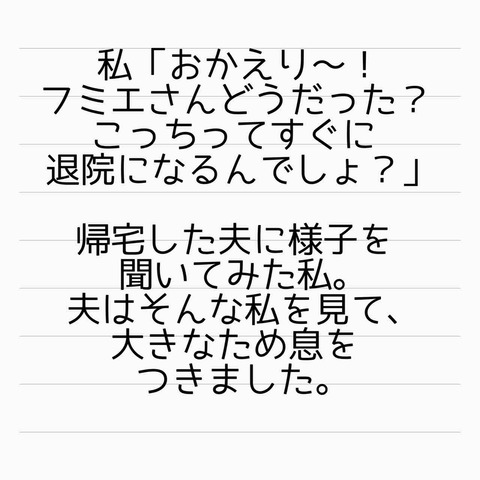 私「おかえり〜！
フミエさんどうだった？
こっちってすぐに
退院になるんでしょ？」
帰宅した夫に様子を
聞いてみた私。
夫はそんな私を見て、
大きなため息を
つきました。